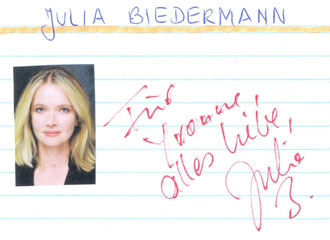 JULIA BIEDERMANN
Für
Yvonne,
alles Liebe,
Julia
B.